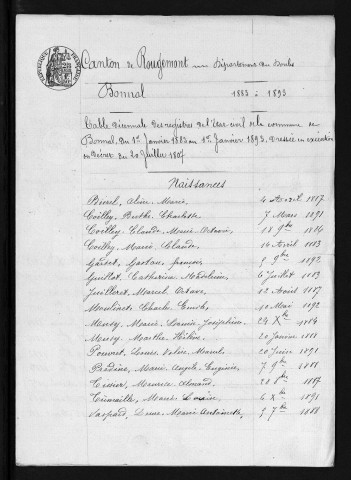 Canton de Rougemont Département du Doubs
Bonnal 1883 à 1893
Table décennale des registres de l'état civil de la commune de
Bonnal du 1er Janvier 1883 au 1er Janvier 1893. Dressée en exécution
du Décret du 20 Juillet 1807
Naissances
Aline Marie 4 Avril 1887
Coilley Berthe Charlotte 7 Mars 1891
Coilley Claude Marie 18 9bre 1884
Coilley Marie Claude 14 Avril 1883
Gaston François 5 9bre 1892
Guillot Catherine Madeleine 6 Juillet 1883
Juilleret Marcel Octave 12 Avril 1887
Charles 10 Mai 1892
Marie Louise Joséphine 24 Xbre 1884
Marthe Hélène 20 Janvier 1888
Louis Marcel 20 Juin 1891
Marie Angèle Eugénie 7 9bre 1888
Maurice Armand 20 8bre 1887
Marie Louise 6 Xbre 1891
Gaspard Marie Antoinette 5 7bre 1888